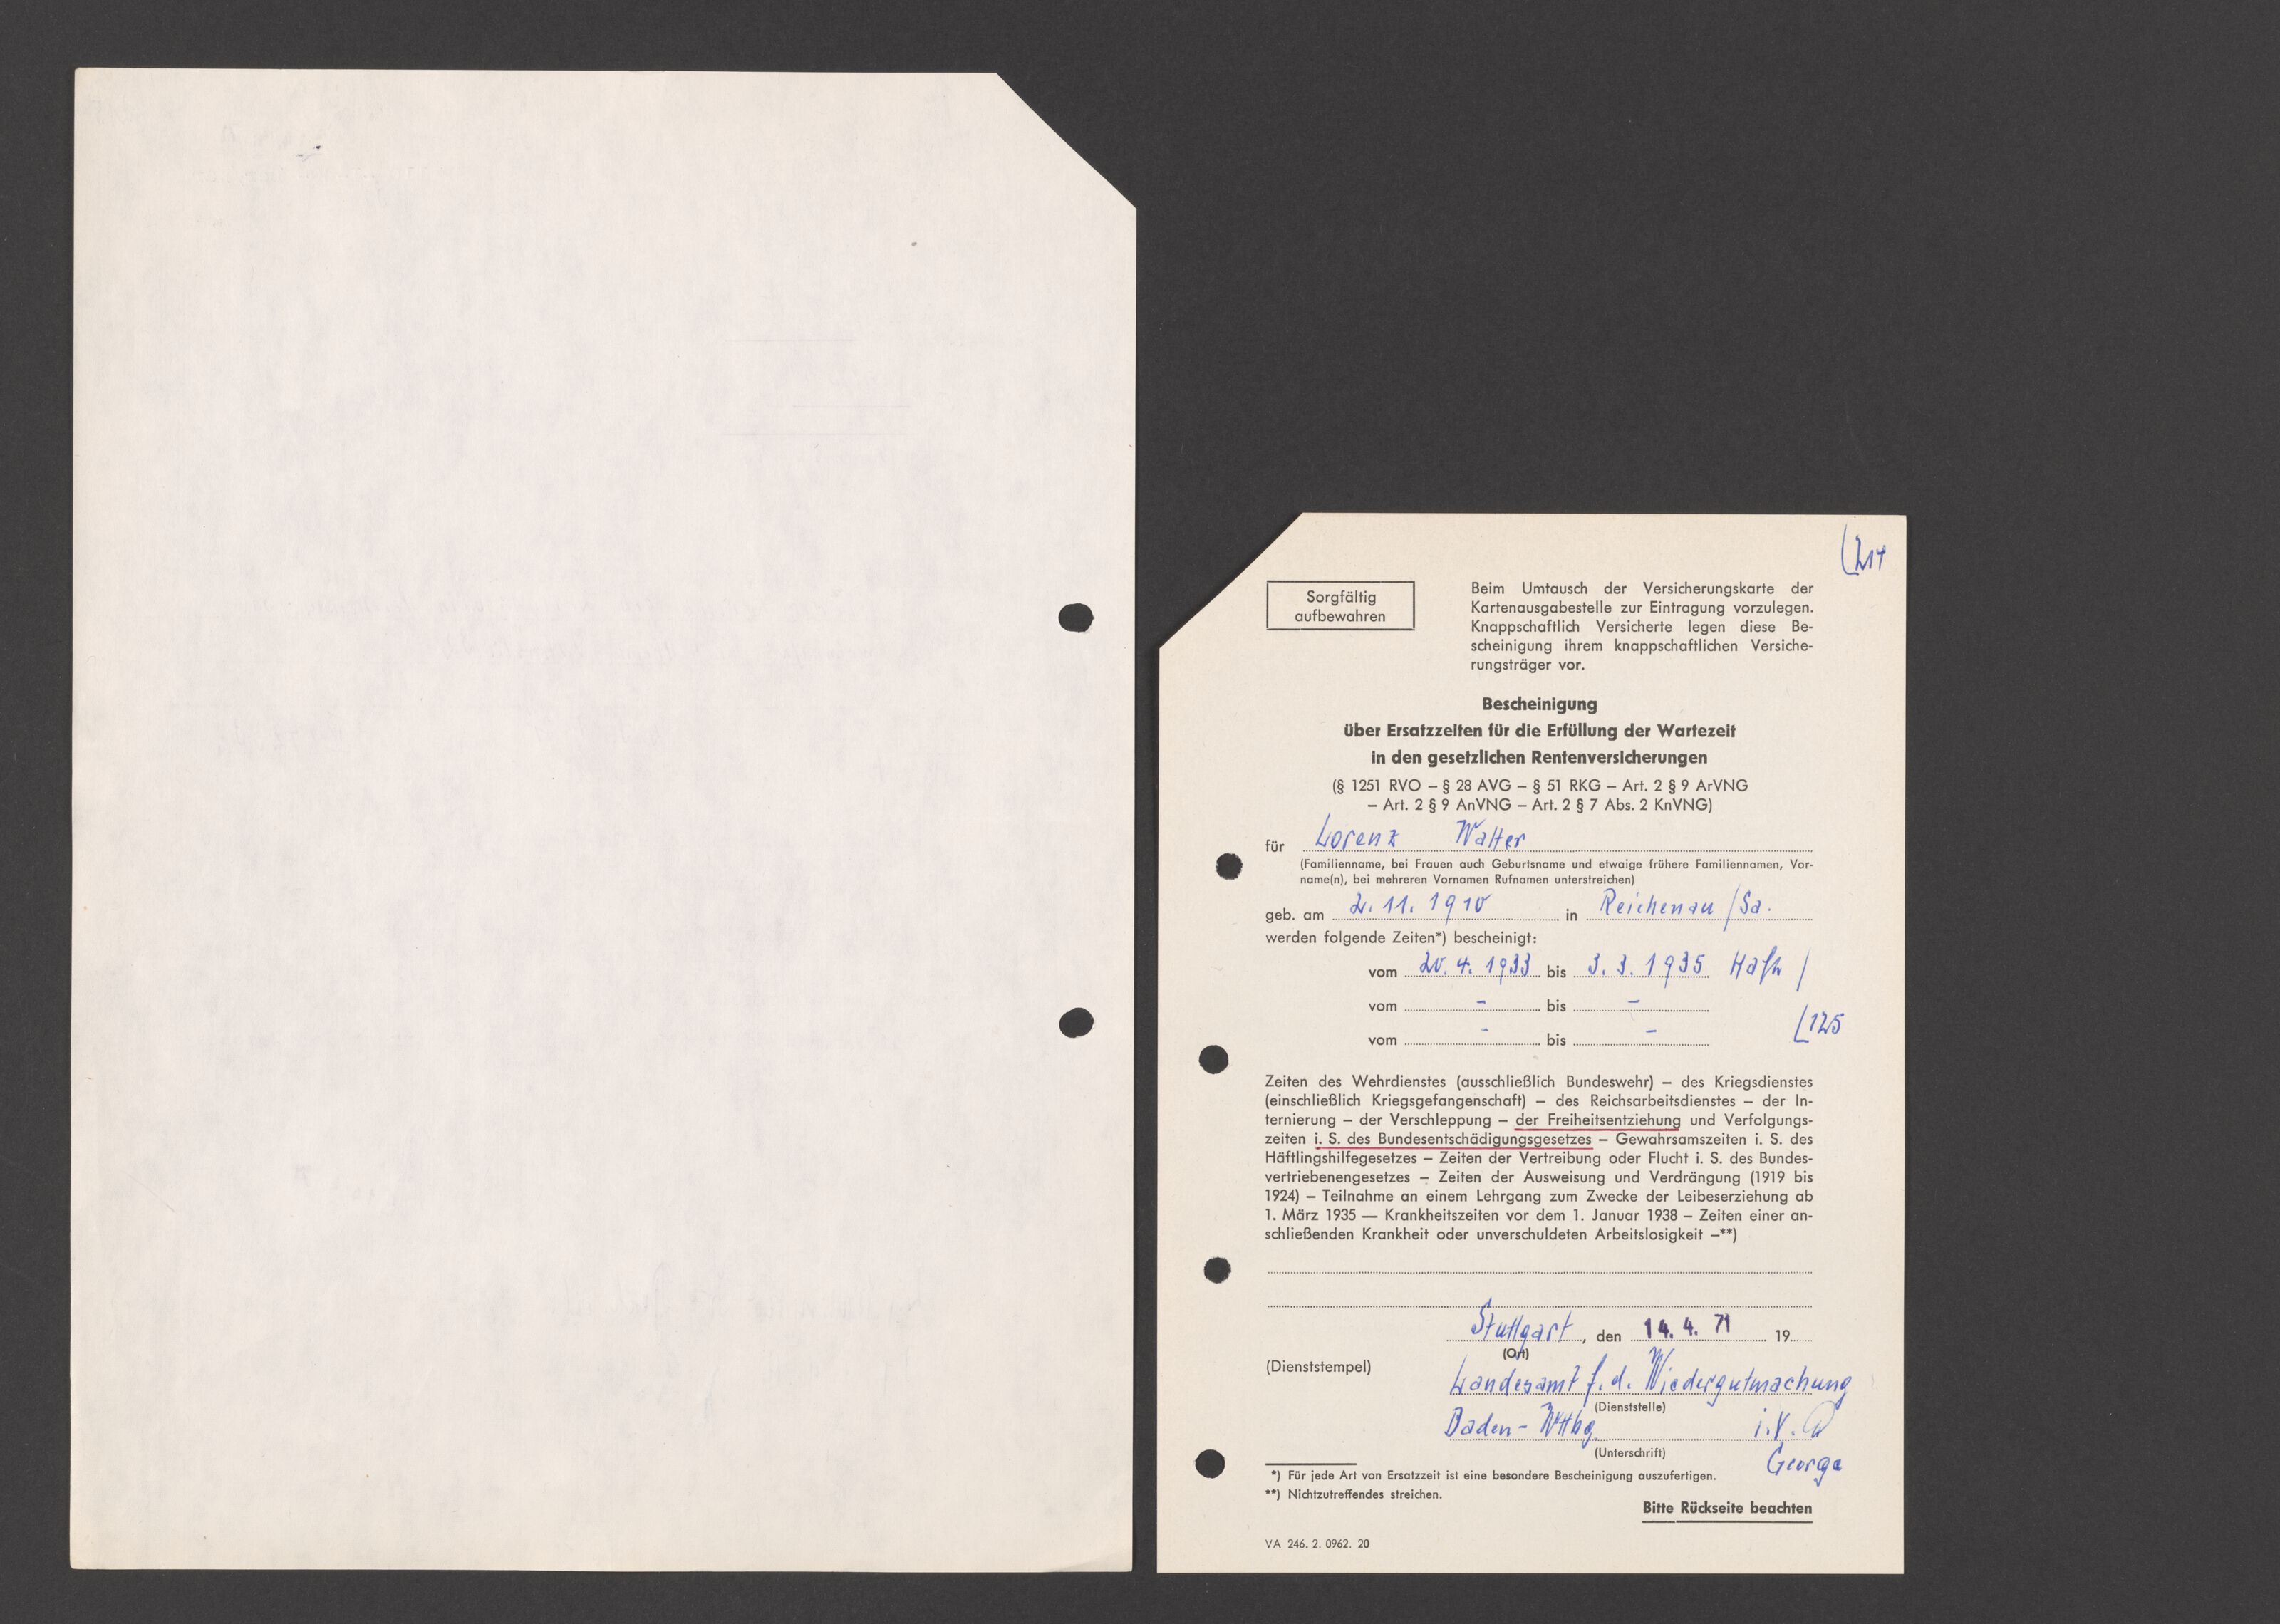 214
Sorgfältig
aufbewahren
Beim Umtausch der Versicherungskarte der
Kartenausgabestelle zur Eintragung vorzulegen.
Knappschaftlich Versicherte legen diese Be-
scheinigung ihrem knappschaftlichen Versiche-
rungsträger vor.
Bescheinigung
über Ersatzzeiten für die Erfüllung der Wartezeit
in den gesetzlichen Rentenversicherungen
(§ 1251 RVO – § 28 AVG – § 51 RKG – Art. 2 § 9 ArVNG
– Art. 2 § 9 AnVNG – Art. 2 § 7 Abs. 2 KnVNG)
für Lorenz Walter
(Familienname, bei Frauen auch Geburtsname und etwaige frühere Familiennamen, Vor-
name(n), bei mehreren Vornamen Rufnamen unterstreichen)
geb. am 2. 11. 1910 in Reichenau / Sa.
werden folgende Zeiten*) bescheinigt:
vom 20. 4. 1933 bis 3. 3. 1935 Haft /
vom – bis –
vom – bis –
125
Zeiten des Wehrdienstes (ausschließlich Bundeswehr) – des Kriegsdienstes
(einschließlich Kriegsgefangenschaft) – des Reichsarbeitsdienstes – der In-
ternierung – der Verschleppung – der Freiheitsentziehung und Verfolgungs-
zeiten i. S. des Bundesentschädigungsgesetzes – Gewahrsamszeiten i. S. des
Häftlingshilfegesetzes – Zeiten der Vertreibung oder Flucht i. S. des Bundes-
vertriebenengesetzes – Zeiten der Ausweisung und Verdrängung (1919 bis
1924) – Teilnahme an einem Lehrgang zum Zwecke der Leibeserziehung ab
1. März 1935 — Krankheitszeiten vor dem 1. Januar 1938 – Zeiten einer an-
schließenden Krankheit oder unverschuldeten Arbeitslosigkeit –**)
Stuttgart, den 14. 4. 71 19
(Ort)
(Dienststempel)
Landesamt f. d. Wiedergutmachung
(Dienststelle)
Baden-Wttbg i. V.
(Unterschrift)
George
*) Für jede Art von Ersatzzeit ist eine besondere Bescheinigung auszufertigen.
**) Nichtzutreffendes streichen.
Bitte Rückseite beachten
VA 246. 2. 0962. 20